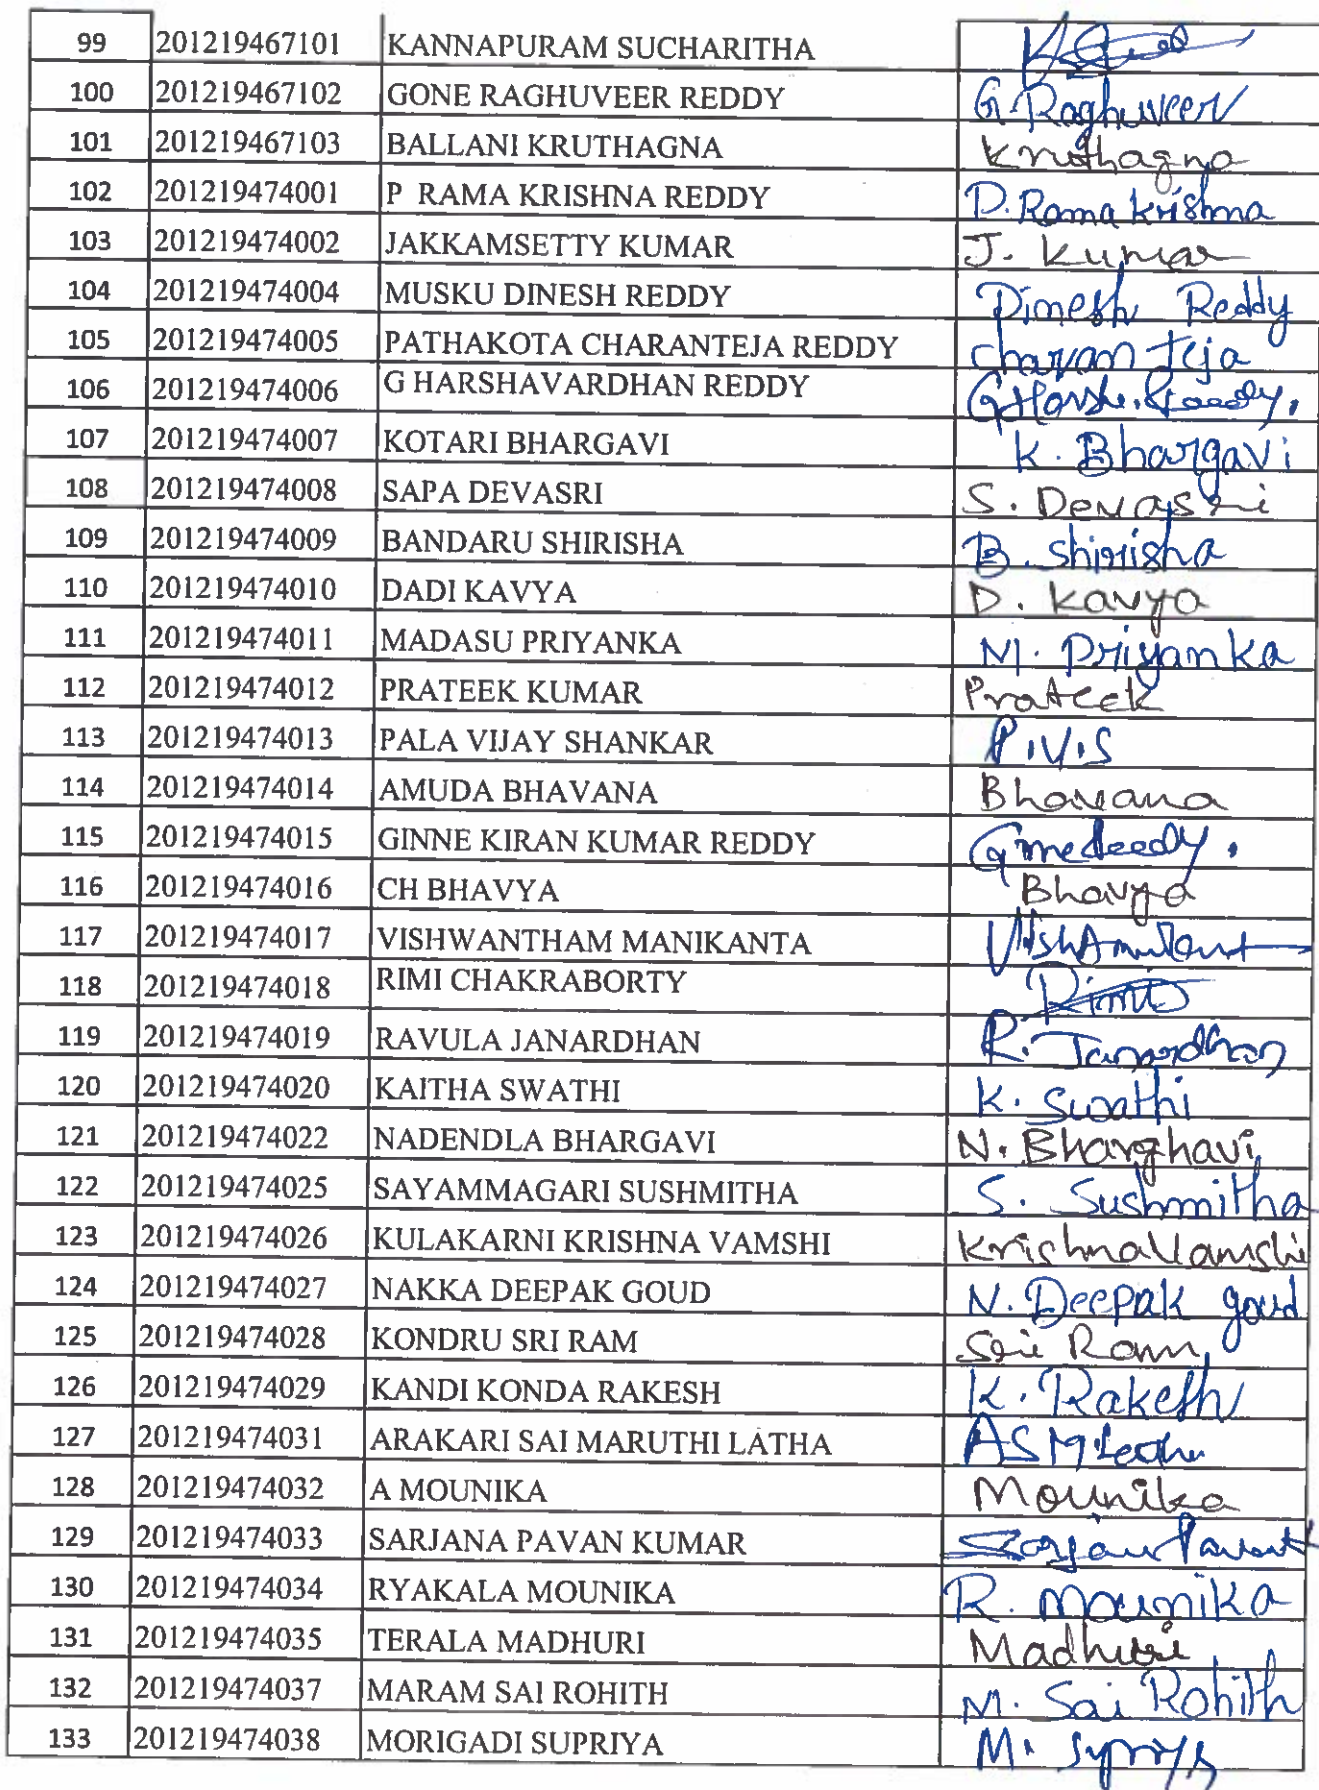 99 201219467101 KANNAPURAM SUCHARITHA
100 201219467102 GONE RAGHUVEER REDDY G. Raghuveer
101 201219467103 BALLANI KRUTHAGNA Kruthagna
102 201219474001 P RAMA KRISHNA REDDY P. Rama Krishna
103 201219474002 JAKKAMSETTY KUMAR J. Kumar
104 201219474004 MUSKU DINESH REDDY Dinesh Reddy
105 201219474005 PATHAKOTA CHARANTEJA REDDY charan teja
106 201219474006 G HARSHAVARDHAN REDDY
107 201219474007 KOTARI BHARGAVI K. Bhargavi
108 201219474008 SAPA DEVASRI S. Devasri
109 201219474009 BANDARU SHIRISHA B. Shirisha
110 201219474010 DADI KAVYA D. Kavya
111 201219474011 MADASU PRIYANKA M. Priyanka
112 201219474012 PRATEEK KUMAR Prateek
113 201219474013 PALA VIJAY SHANKAR P.V.S
114 201219474014 AMUDA BHAVANA Bhavana
115 201219474015 GINNE KIRAN KUMAR REDDY
116 201219474016 CH BHAVYA Bhavya
117 201219474017 VISHWANTHAM MANIKANTA
118 201219474018 RIMI CHAKRABORTY Rimi
119 201219474019 RAVULA JANARDHAN R. Janardhan
120 201219474020 KAITHA SWATHI K. Swathi
121 201219474022 NADENDLA BHARGAVI N. Bharghavi
122 201219474025 SAYAMMAGARI SUSHMITHA S. Sushmitha
123 201219474026 KULAKARNI KRISHNA VAMSHI Krishna Vamshi
124 201219474027 NAKKA DEEPAK GOUD N. Deepak goud
125 201219474028 KONDRU SRI RAM Sri Ram
126 201219474029 KANDI KONDA RAKESH K. Rakesh
127 201219474031 ARAKARI SAI MARUTHI LATHA ASM Latha
128 201219474032 A MOUNIKA Mounika
129 201219474033 SARJANA PAVAN KUMAR
130 201219474034 RYAKALA MOUNIKA R. Mounika
131 201219474035 TERALA MADHURI Madhuri
132 201219474037 MARAM SAI ROHITH M. Sai Rohith
133 201219474038 MORIGADI SUPRIYA M. Supriya